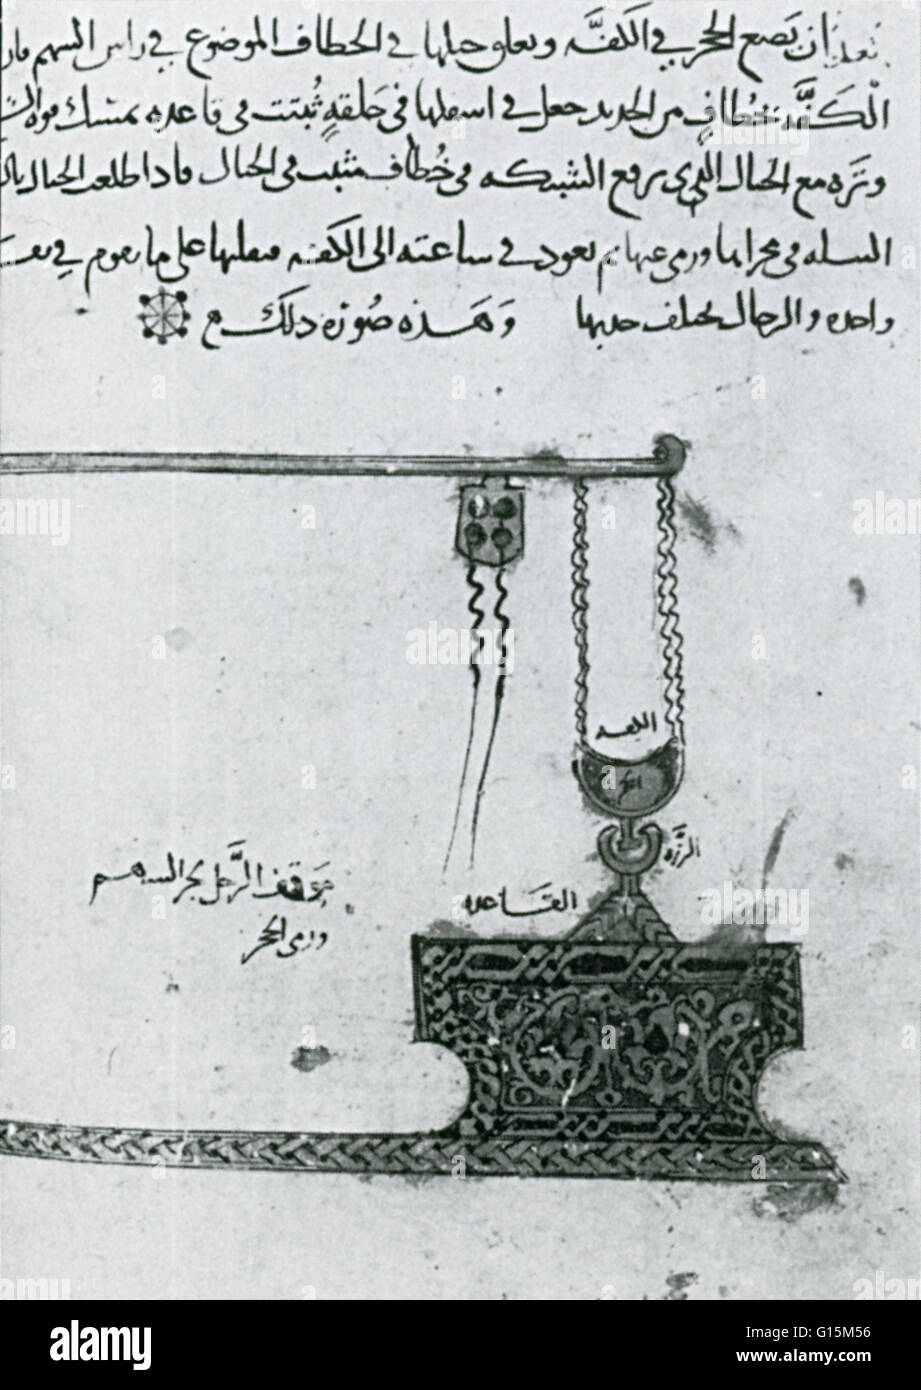 ان يضع الحجر في الكفَّه وتعلق حبلها في الخطاف الموضوع في راس السهم
الكفَّه خُطافٍ من الحديد جعل في اسفلها في حَلقهٍ ثُبتت في قاعده
وتره مع الحبال الذي يرفع الشبكه في خُطاف مثبت في الحبال فاذا طلعت الحبال
السلسله في مجراها ورمى عنها ثم يعود في ساعته الى الكفه على ما يقوم في
واحده والرجال وَهَذه صُورَة ذلك
الكفه
الحجر
الرَّزه
القَاعده
مَوقف الرَّجل بجر السهم
ورمى الحجر
alamy
alamy stock photo
Image ID: G15M56
www.alamy.com